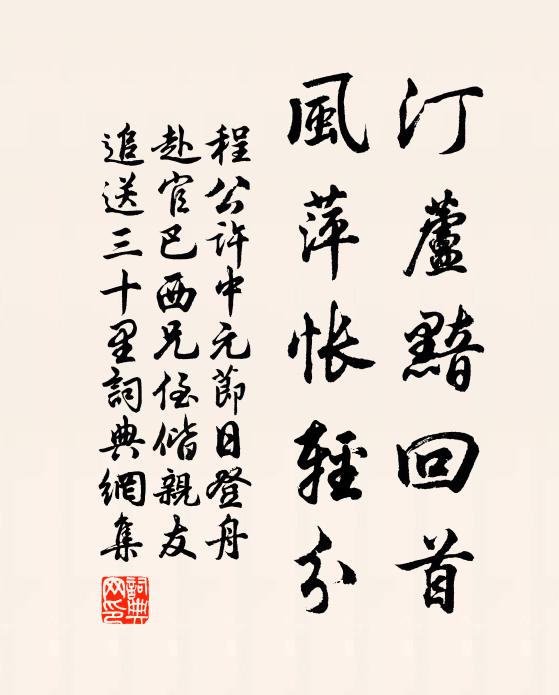 汀蘆黯回首
風萍悵輕分
程公許中元節日登舟
赴官巴西兄侄偕親友
追送三十里詞典網集
詞典網印